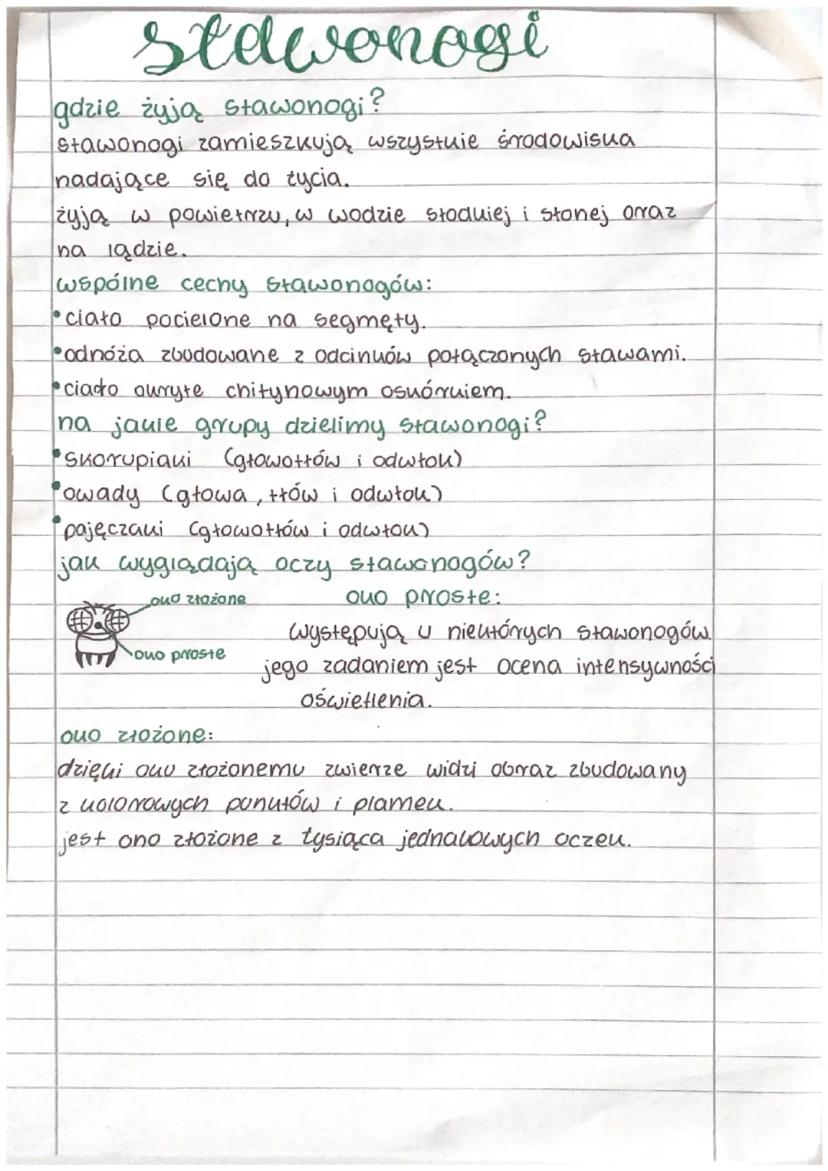 stawonogi
gdzie żyją stawonogi?
stawonogi zamieszkują wszystkie środowiska
nadające się do życia.
żyją w powietrzu, w wodzie słodkiej i słonej oraz
na lądzie.
wspólne cechy stawonogów:
•ciało pocielone na segmęty.
•odnóża zbudowane z odcinków połączonych stawami.
•ciało okryte chitynowym oskórkiem.
na jakie grupy dzielimy stawonogi?
•skorupiaki (głowotłów i odwłok)
•owady (głowa, tłów i odwłok)
•pajęczaki (głowotłów i odwłok)
jak wyglądają oczy stawonogów?
oko złożone
oko proste
oko proste:
występują u niektórych stawonogów.
jego zadaniem jest ocena intensywności
oświetlenia.
oko złożone:
dzięki oku złożonemu zwierze widzi obraz zbudowany
z kolorowych punktów i plamek.
jest ono złożone z tysiąca jednakowych oczek.